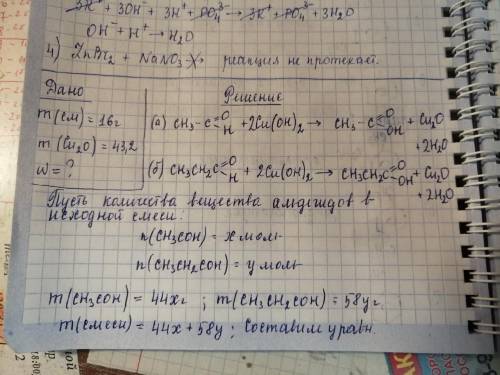 3K⁺ + 3OH⁻ + 3H⁺ + PO₄³⁻ → 3K⁺ + PO₄³⁻ + 3H₂O
OH⁻ + H⁺ → H₂O
4) ZnBr₂ + NaNO₃ ↛ реакция не протекает.
Дано
m(см) = 16г
m(Cu₂O) = 43,2
ω = ?
Решение
(а) CH₃-C(=O)H + 2Cu(OH)₂ → CH₃-C(=O)OH + Cu₂O
+ 2H₂O
(б) CH₃CH₂C(=O)H + 2Cu(OH)₂ → CH₃CH₂C(=O)OH + Cu₂O
+ 2H₂O
Пусть количества вещества альдегидов в
исходной смеси:
n(CH₃COH) = x моль
n(CH₃CH₂COH) = y моль
m(CH₃COH) = 44xг ; m(CH₃CH₂COH) = 58yг.
m(смеси) = 44x + 58y ; Составим уравн.
18:00,